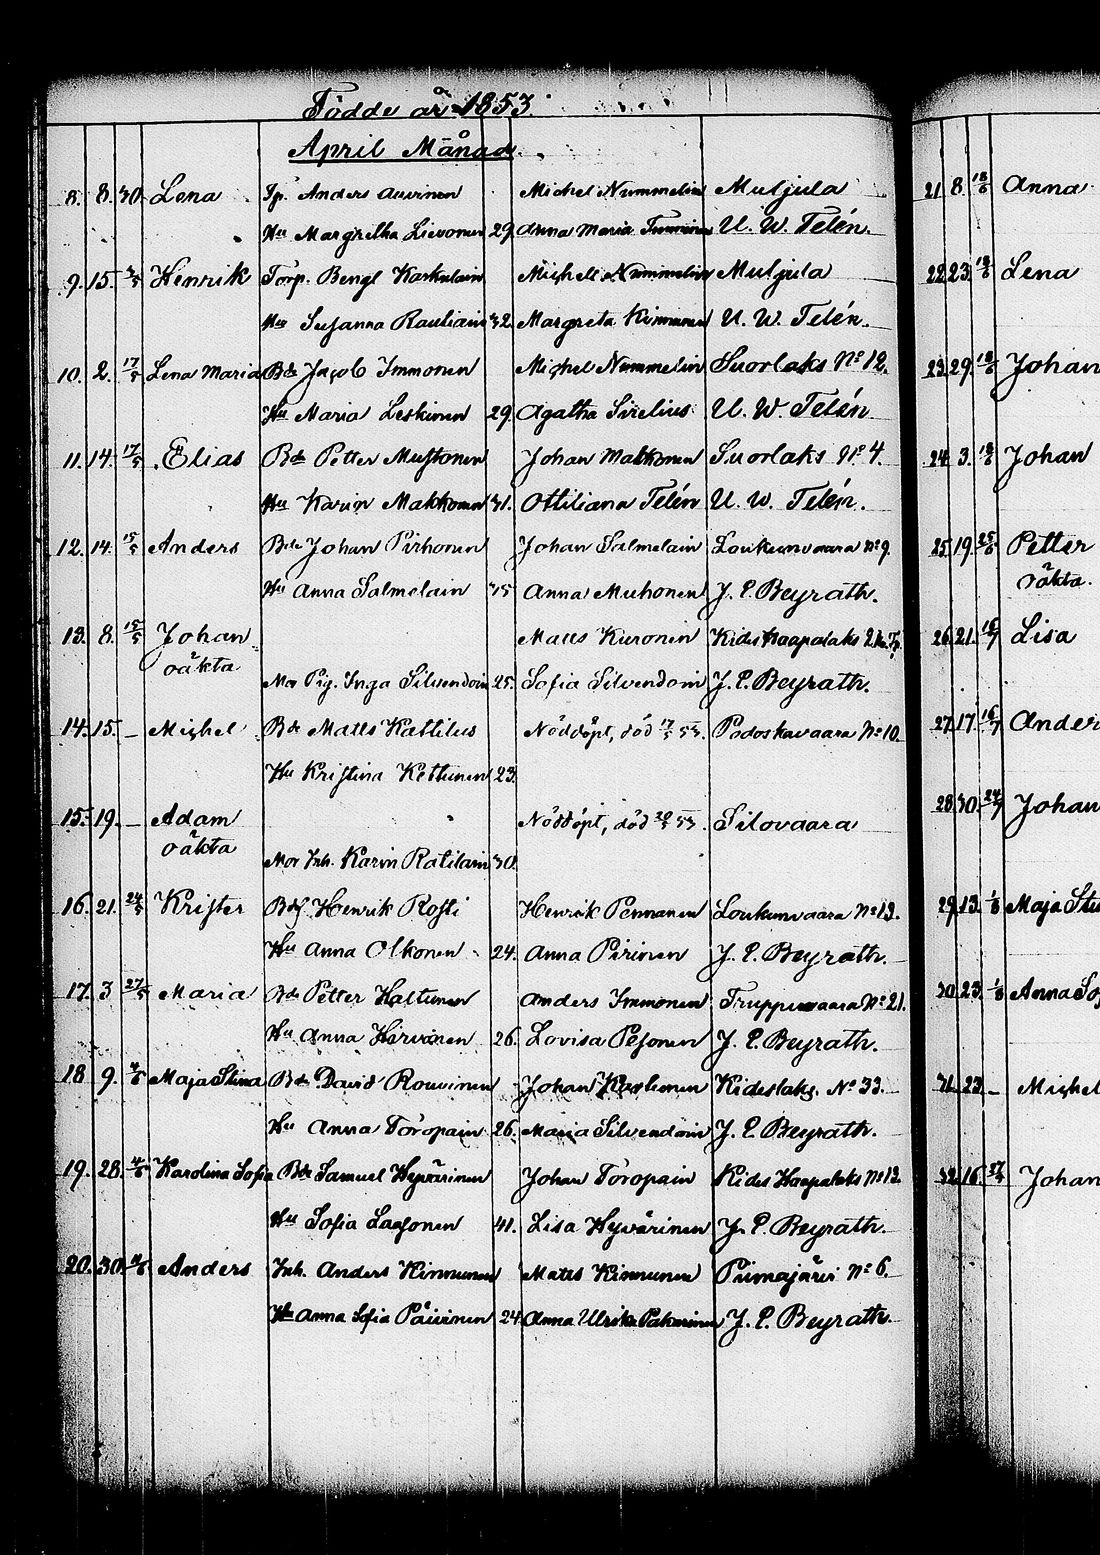 Födde år 1853.
April Månad.
8. 8. 30 Lena Tp. Anders Auvinen Michel Nummelin Muljula
Hu Margretha Lievonen 29. Anna Maria U. W. Telén.
9. 15. Henrik Torp. Bengt Karkulain Michell Nummelin Muljula
Hu Susanna Rautiain 32. Margreta Kinnunen U. W. Telén.
10. 2. 17/5 Lena Maria Bde Jacob Immonen Michel Nummelin Suorlaks No 12.
Hu Maria Leskinen 29. Agatha Sirelius U. W. Telén
11. 14. 17/5 Elias Bde Petter Mustonen Johan Makkonen Suorlaks No 4.
Hu Karin Makkonen 31. Ottiliana Telén U. W. Telén.
12. 14. 15/5 Anders Bde Johan Pirhonen Johan Salmelain Loukunvaara No 9.
Hu Anna Salmelain 35 Anna Muhonen J. E. Beyrath.
13. 8. 15/5 Johan Matts Kuronen Kides Haapalaks
oäkta
Mor Pig. Inga Silvendoin 25. Sofia Silvendoin J. E. Beyrath.
14. 15. – Michel Bde Matts Kattilus Nöddöpt, död 17/5 53. Podoskavaara No 10.
Hu Kristina Kettunen 23.
15. 19. – Adam Nöddöpt, död 53. Silovaara
oäkta
Mor Inh. Karin Ratilain 30.
16. 21. 24/5 Krister Bdes. Henrik Rosti Henrik Pennanen Loukunvaara No 13.
Hu Anna Olkonen 24. Anna Pirinen J. E. Beyrath.
17. 3 27/5 Maria Bde Petter Haltunen Anders Immonen Truppuvaara No 21.
Hu Anna Hirvonen 26. Lovisa Pesonen J. E. Beyrath.
18 9. Maja Stina Bde David Rouvinen Johan Kaslonen Kideslaks. No 33.
Hu Anna Toropain 26. Maria Silvendoin J. E. Beyrath.
19. 28. 4/6 Karolina Sofia Bde Samuel Hyvärinen Johan Toropain Kides Haapalaks No 13.
Hu Sofia Laasonen 41. Lisa Hyvärinen J. E. Beyrath.
20. 30. Anders Inh. Anders Kinnunen Matts Kinnunen Piimajärvi No 6.
Hu Anna Sofia Päivinen 24. Anna Ulrika Pakarinen J. E. Beyrath.
21 8. 18/6 Anna
22 23. Lena
23. 29. 18/6 Johan
24 3. Johan
25. 19. 25/6 Petter
oäkta.
26. 21. Lisa
27. 17. Ander
28 30. 24/7 Johan
29 13. Maja Sti
30. 23. Anna Sof
31. 23. – Michel
32. 16. Johan